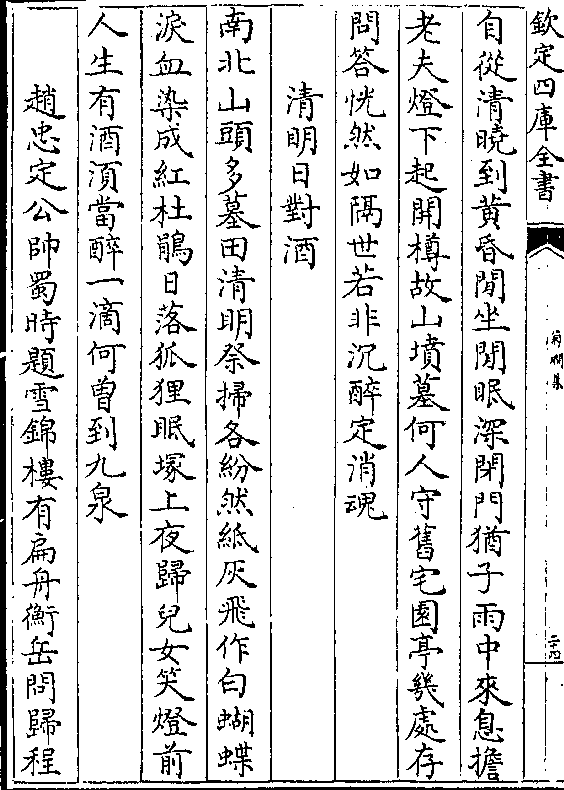 欽定四庫全書
菊磵集
二十四
自從清曉到黃昏閒坐閒眠深閉門猶子雨中來息擔
老夫燈下起開樽故山墳墓何人守舊宅園亭幾處存
問答恍然如隔世若非沉醉定消魂
清明日對酒
南北山頭多墓田清明祭掃各紛然紙灰飛作白蝴蝶
淚血染成紅杜鵑日落狐狸眠塚上夜歸兒女笑燈前
人生有酒須當醉一滴何曾到九泉
趙忠定公帥蜀時題雪錦樓有扁舟衡岳問歸程